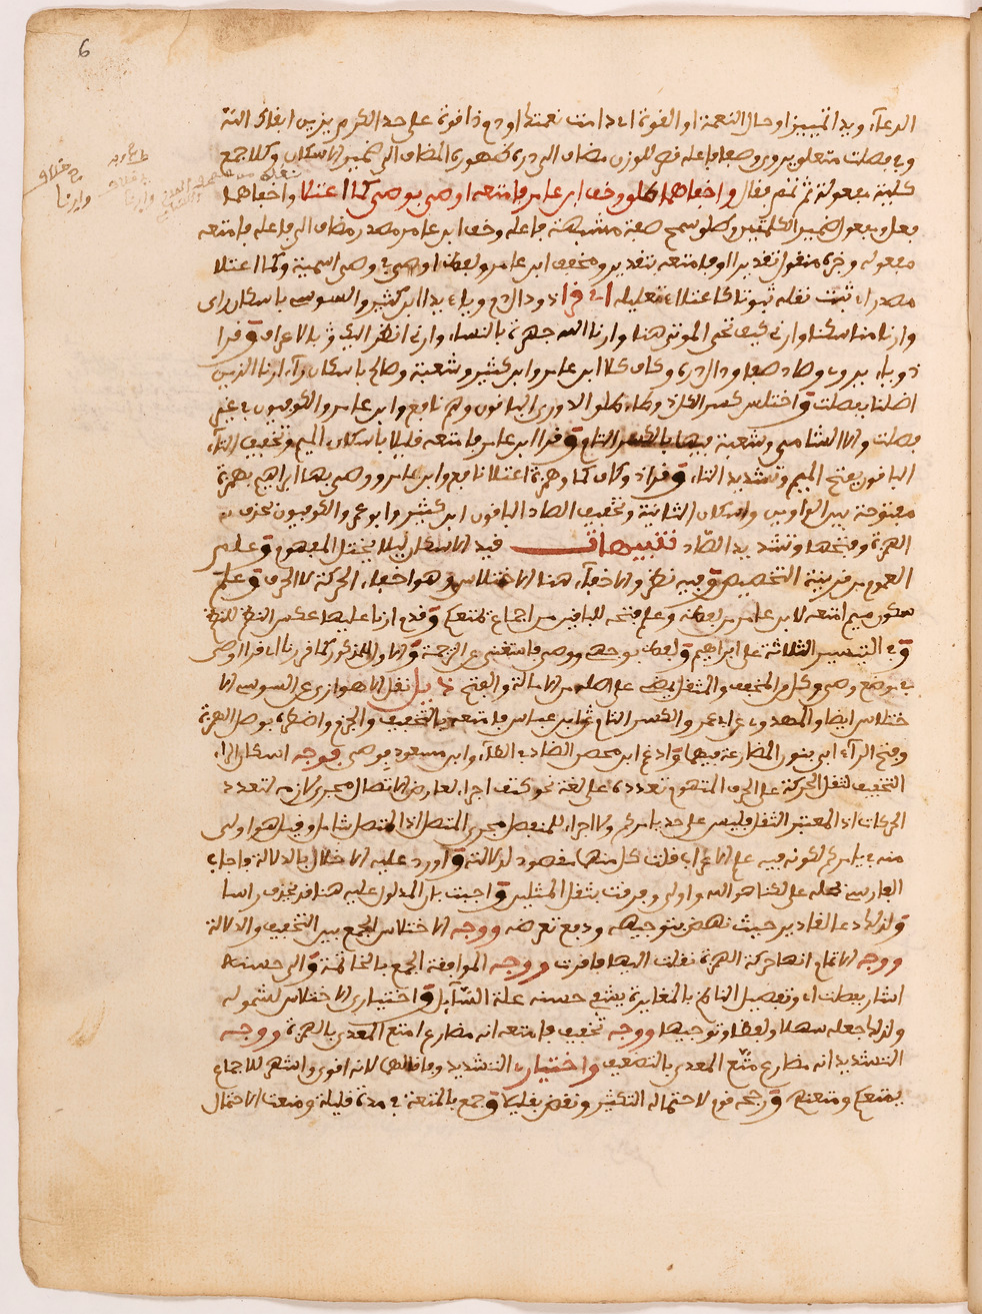 6
الدعاء ويدا تمييز او حال النعمة او القوة اى دامت نعمتك او دم ذا قوة على حد الكرم يزيں
وفي فصلت متعلق يروى وصفا فاعله قصر للوزن مضاف الى درى ظهوره المضاف الى ضمير الاسكان وكلا جمع
كلية مفعوله ثم تمم فقال واخفاهما طلق وخف ابن عامر فامتعه اوصى بوصى كما اعتلا واخفاهما
فعل ومفعول ضمير الكلمتين وطلق سمح صفة مشبهة فاعله وخف ابن عامر مصدر مضاف الى فاعله فامتعه
مفعوله وخبره منقول تقديرا او فامتعه بتقدير ومخفف ابن عامر ولفظ اوصى في وصى اسمية وكما اعتلا
مصدر اى ثبت نقله ثبوتا كاعتلاء تعليله اى قرا ذو دال دم وياء يدا ابن كثير والسوسى باسكان راى
وارنا مناسكنا وارنى كيف تحي الموتى هنا وارنا الله جهرة بالنساء وارنى انظر اليك بالاعراف وقرا
ذو ياء يروى وصاد صفا ودال دره وكاف كلا ابن عامر وابن كثير وشعبة وصالح باسكان راء ارنا الذين
اضلنا بفصلت واختلس كسر الكل ذو طاء طلق الدورى الباقون وهم نافع وابن عامر والكوفيون في غير
فصلت والا الشامى وشعبة فيها بالكسر التام وقرا ابن عامر فامتعه قليلا باسكان الميم وتخفيف التاء
الباقون بفتح الميم وتشديد التاء وقرا ذو كاف كما وهمزة اعتلا نافع وابن عامر ووصى بها ابراهيم بهمزة
مفتوحة بين الواوين واسكان الثانية وتخفيف الصاد الباقون ابن كثير وابو عمرو والكوفيون بحذف
الهمزة وفتحها وتشديد الصاد تنبيهات قيد الاسكان ليلا يختل المفهوم وعلم
العموم من قرينة التخصيص وفيه نظر والاخفاء هنا الاختلاس وهو اخفاء الحركة لا الحرف وعلم
سكون ميم امتعه لابن عامر من لفظه وعلم فتحه للباقين من اجماع نمتعكم وقدم ارنا عليها عكس النظم للنظم
وفي التيسير الثلاثة على ابراهيم ولفظ بوجهى ووصى فاستغنى عن الترجمة والواو المذكور كما قررنا اى قرا اوصى
في موضع وصى وكل من المخفف والمثقل يمضى على اصله من الامالة والفتح ذيل نقل الاهوازى عن السوسى الا
ختلاس ايضا والمهدوى عن ابى عمر والكسر التام وقرا ابن عباس فامتعه بالتخفيف والجزم واضطره بوصل الهمزة
وفتح الراء ابى بنون المضارعة فيهما وادغم ابن محيصن الضاد في الطاء وابن مسعود فوصى توجيه اسكان الراء
التخفيف لثقل الحركة على الحرف المتوهم تعدده على لغة نحو كتف اجراء لعارض الاتصال مجرى لازمه لتعدد
الحركات اذ المعتبر الثقل فليس على حد يامركم ولا اجراء للمنفصل مجرى المتصل اذ المتصل شامل وقيل هو اولى
منه في يامركم لكونه فيه علم الاعراب قلت كل منهما مقصود لدلالته واورد عليه الاخلال بالدلالة واجاب
الفارسى بحمله على لكنا هو الله واولى وفرقت بثقل المثلين واجيب بان المدلول عليه هنا قد يحذف راسا
ولذلك دعا لقادير حيث نهض بتوجيهه ودفع تعرضه ووجه الاختلاس الجمع بين التخفيف والدلالة
ووجه الاتمام انها حركة الهمزة نقلت اليها فاقرت ووجه الموافقة الجمع بالمخالفة والى حسنه
اشار بفصلت اى وتفصيل الناظم بالمغايرة يشفع حسنه علة السايل واختيارى الاختلاس لشموله
ولذلك جعله سهلا ولفظا وتوجيها ووجه تخفيف فامتعه انه مضارع امتع المعدى بالهمزة ووجه
التشديد انه مضارع متع المعدى بالتضعيف واختيارى التشديد وفاقا لهما لانه اقوى واشهر للاجماع
يمتعكم ومتعناهم ورجحه قوم لاحتماله التكثير ونقض بقليلا وجمع بالمتعة في مدة قليلة ومنعت الاحتمال